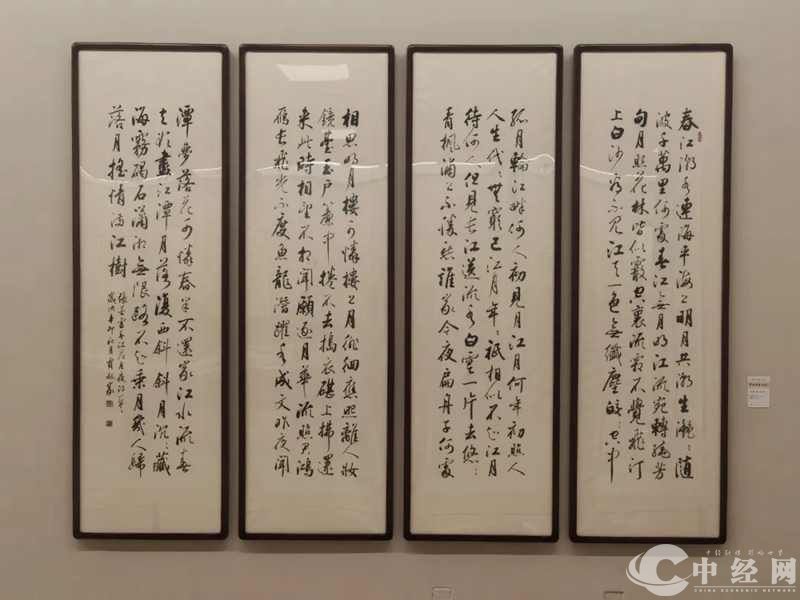 春江潮水連海平海上明月共潮生灧〻隨
波千萬里何處春江無月明江流宛轉繞芳
甸月照花林皆似霰空裏流霜不覺飛汀
上白沙看不見江天一色無纖塵皎〻空中
孤月輪江畔何人初見月江月何年初照人
人生代〻無窮已江月年〻祇相似不知江月
待何人但見長江送流水白雲一片去悠〻
青楓浦上不勝愁誰家今夜扁舟子何處
相思明月樓可憐樓上月徘徊應照離人妝
鏡臺玉戶簾中捲不去搗衣砧上拂還
來此時相望不相聞願逐月華流照君鴻
雁長飛光不度魚龍潛躍水成文昨夜聞
潭夢落花可憐春半不還家江水流春
去欲盡江潭月落復西斜斜月沉〻藏
海霧碣石瀟湘無限路不知乘月幾人歸
落月搖情滿江樹
張若虛春江花月夜詩一首
歲次辛卯秋月
中经网
CHINA ECONOMIC NETWORK